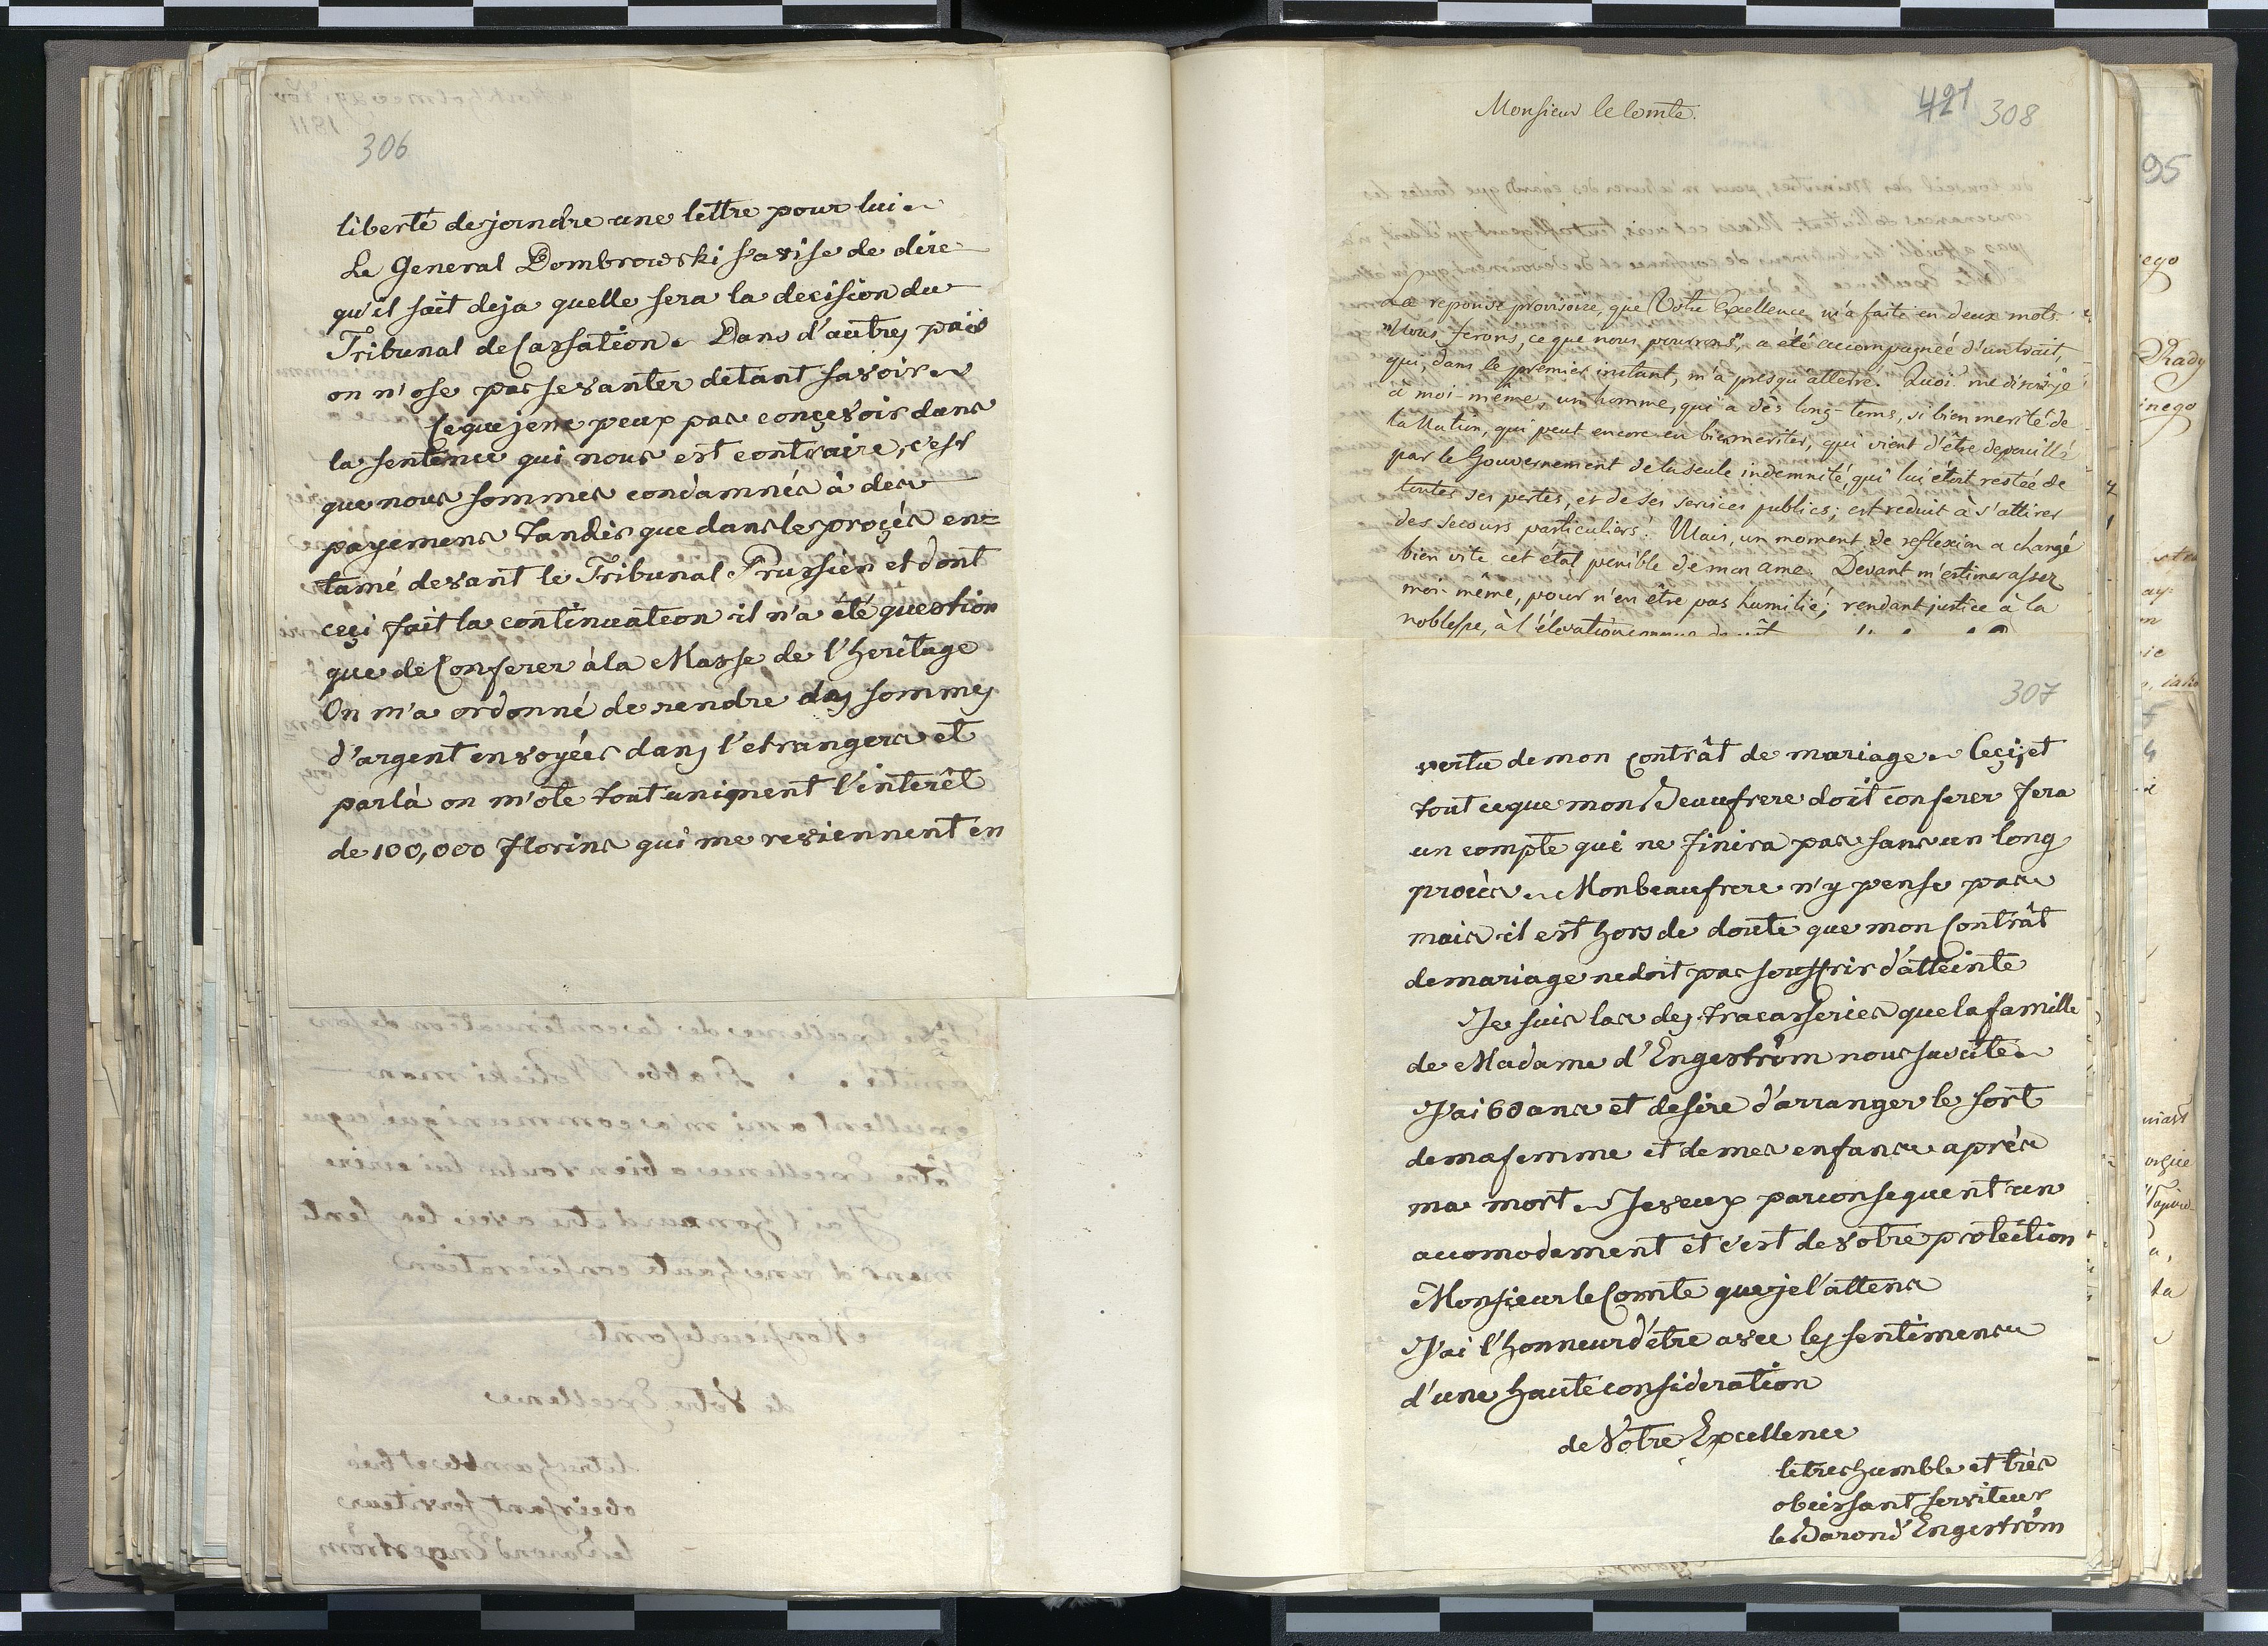 306
liberté de joindre une lettre pour lui.
Le General Dombrowski s'avise de dire
qu'il sait deja quelle sera la decision du
Tribunal de Cassation. Dans d'autres païs
on n'ose pas se vanter de tant savoir.
Ce que je ne peux pas conçevoir dans
la sentence qui nous est contraire, c'est
que nous sommes condamnés à des
payemens tandis que dans le proçés en=
tamé devant le Tribunal Prussien et dont
ceçi fait la continuation il n'a été question
que de Conferer à la Masse de l'heritage
On m'a ordonné de rendre des sommes
d'argent envoyées dans l'etrangers et
par là on m'ote tout uniment l'interêt
de 100,000 florins qui me reviennent en
421 308
Monsieur le Comte.
La reponse provisoire, que Votre Excellence m'a faite en deux mots
"Nous ferons, ce que nous pourrons", a été accompagneé d'un trait,
qui, dans le premier instant, m'a presqu'atterré. Quoi! me disois-je
à moi-même, un homme, qui a dès long-tems, si bien merité de
la Nation, qui peut encore en bien meriter, qui vient d'être depouillé
par le Gouvernement de la seule indemnité, qui lui étoit restée de
toutes ses pertes, et de ses services publics; est reduit à s'attirer
des secours particuliers! Mais, un moment de reflexion a changé
bien vite cet état penible de mon ame. Devant m'estimer assez
moi-même, pour n'en être pas humilié; rendant justice à la
noblesse, à l'élevation
307
vertu de mon contrât de mariage. Ceçi, et
tout ce que mon Beaufrere doit conferer fera
un compte qui ne finira pas sans un long
procès. Mon beaufrere n'y pense pas
mais il est hors de doute que mon Contrât
de mariage ne doit pas souffrir d'atteinte
Je suis las des tracasseries que la famille
de Madame d'Engeström nous suscite.
J'ai 60 ans et desire d'arranger le sort
de ma femme et de mes enfans aprés
ma mort. Je veux par consequent un
accomodement et c'est de votre protection
Monsieur le Comte que je l'attens
J'ai l'honneur d'être avec les sentimens
d'une haute consideration
de Votre Excellence
le tres humble et très
obeissant serviteur
le Baron d'Engeström